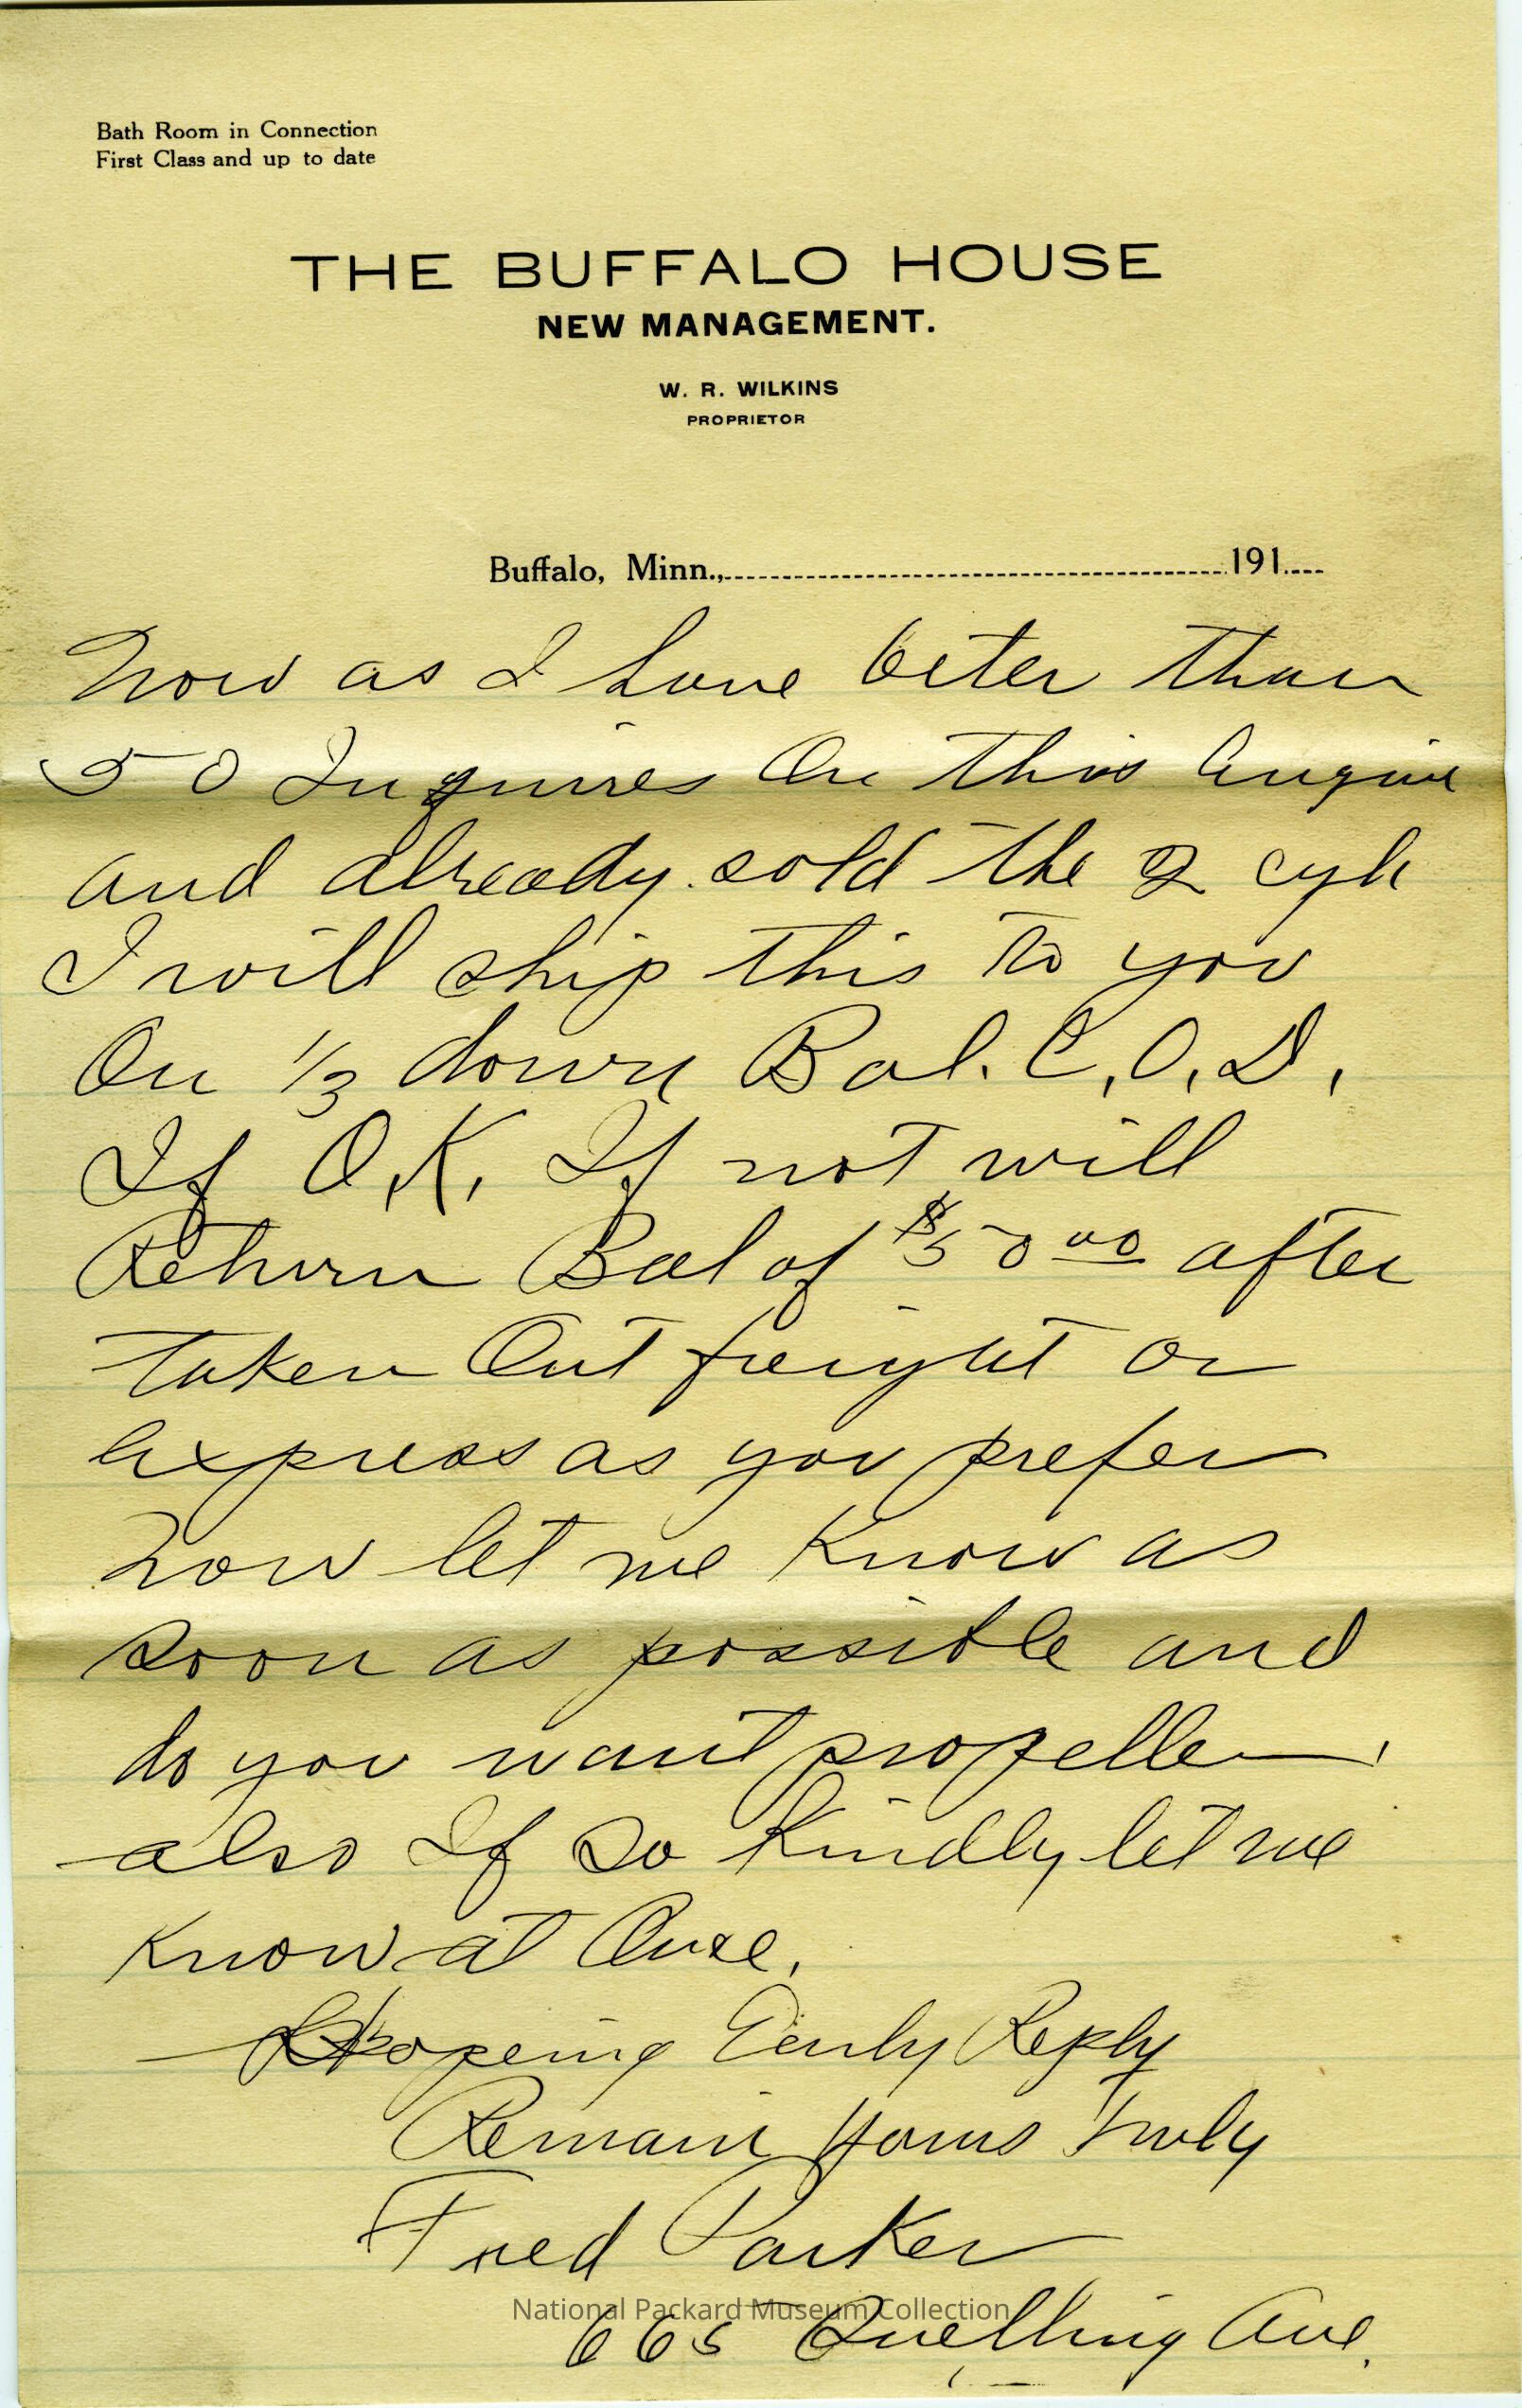 Bath Room in Connection
First Class and up to date
THE BUFFALO HOUSE
NEW MANAGEMENT.
W. R. WILKINS
PROPRIETOR
Buffalo, Minn., 191
Now as I have beter than
50 Inquires On this Engine
and already sold the 2 cyl
I will ship this to you
On 1/3 down Bal. C.O.D.
If O.K. If not will
Return Bal of $50 00 after
taken Out freight or
Express as you prefer
Now let me Know as
soon as possible and
do you want propeller
also If so Kindly let me
Know at Once.
Hopeing Early Reply
Remain Yours truly
Fred Parker
National Packard Museum Collection
665 Ave.